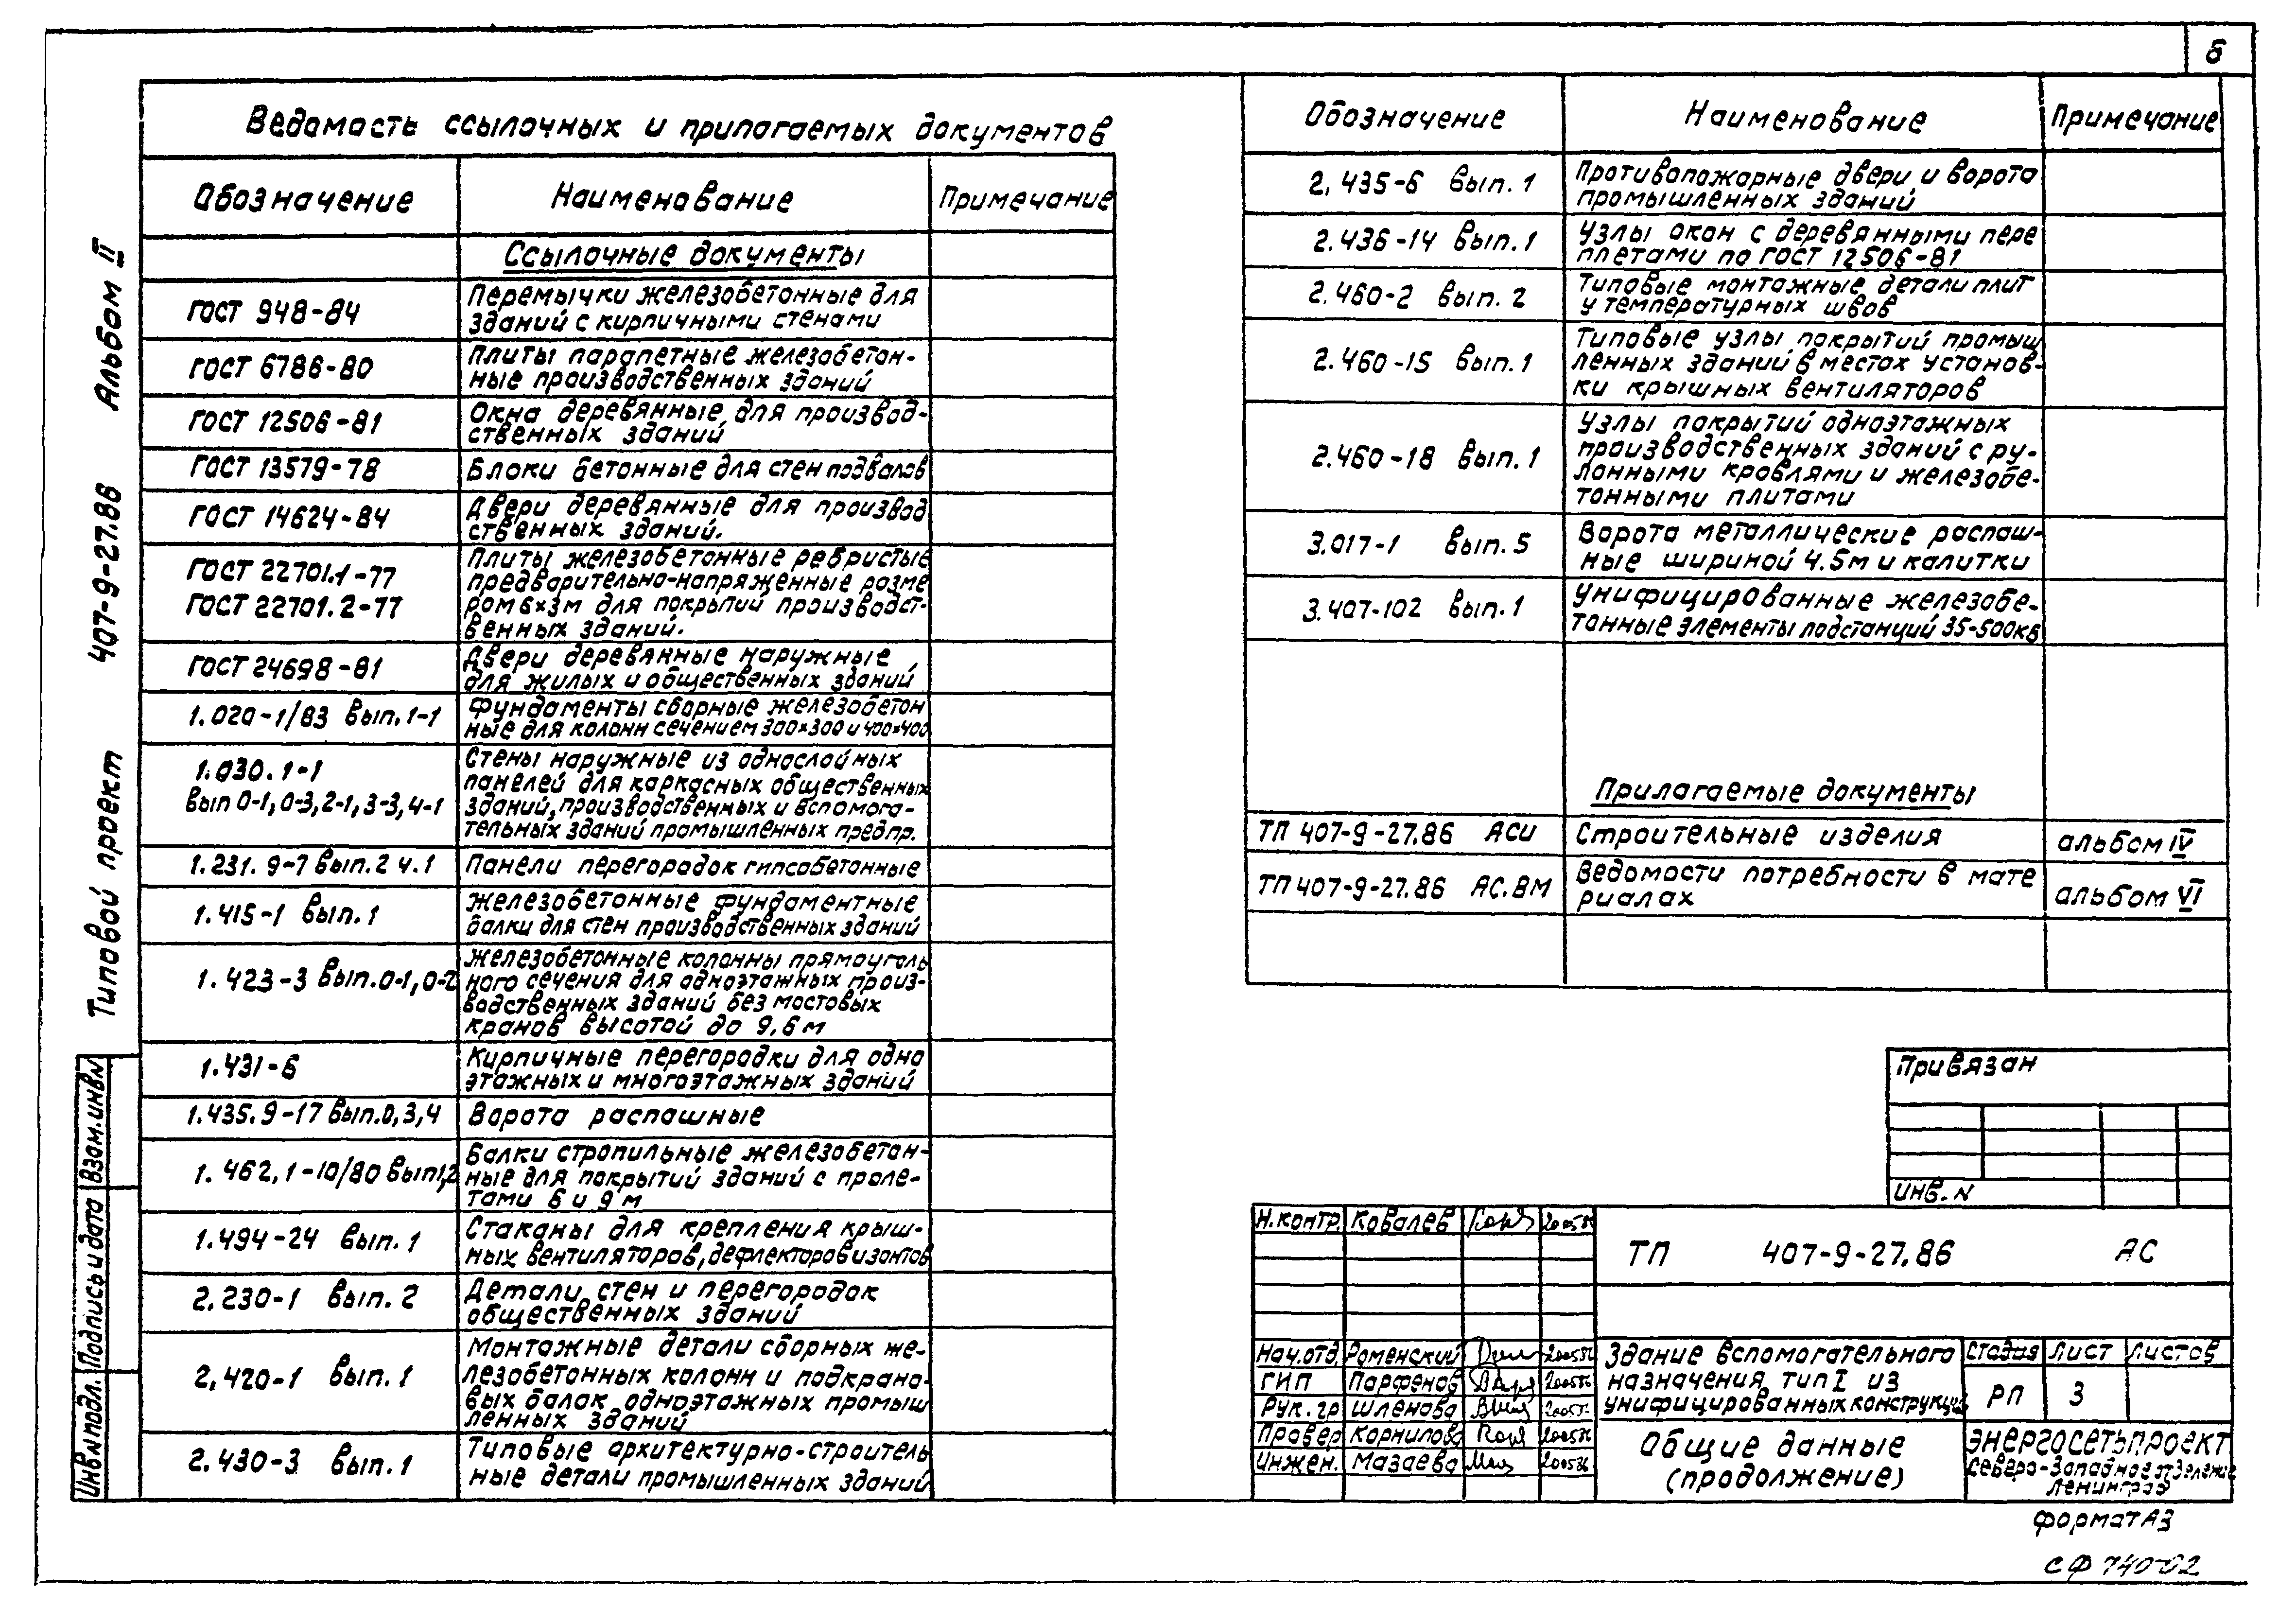 6
Типовой проект 407-9-27.86 Альбом II
Инв.N подл. Подпись и дата Взам.инв N
Ведомость ссылочных и прилагаемых документов
Обозначение Наименование Примечание
Ссылочные документы
ГОСТ 948-84 Перемычки железобетонные для
зданий с кирпичными стенами
ГОСТ 6786-80 Плиты парапетные железобетон-
ные производственных зданий
ГОСТ 12506-81 Окна деревянные для производ-
ственных зданий
ГОСТ 13579-78 Блоки бетонные для стен подвалов
ГОСТ 14624-84 Двери деревянные для производ
ственных зданий.
ГОСТ 22701.1-77 Плиты железобетонные ребристые
предварительно-напряженные разме
ГОСТ 22701.2-77 ром 6×3м для покрытий производст-
венных зданий.
ГОСТ 24698-81 Двери деревянные наружные
для жилых и общественных зданий
1.020-1/83 вып.1-1 Фундаменты сборные железобетон
ные для колонн сечением 300×300 и 400×400
1.030.1-1 Стены наружные из однослойных
панелей для каркасных общественных
вып 0-1, 0-3, 2-1, 3-3, 4-1 зданий, производственных и вспомога-
тельных зданий промышленных предпр.
1.231.9-7 вып.2 ч.1 Панели перегородок гипсобетонные
1.415-1 вып.1 Железобетонные фундаментные
балки для стен производственных зданий
1.423-3 вып.0-1, 0-2 Железобетонные колонны прямоуголь
ного сечения для одноэтажных произ-
водственных зданий без мостовых
кранов высотой до 9,6 м
1.431-6 Кирпичные перегородки для одно
этажных и многоэтажных зданий
1.435.9-17 вып.0, 3, 4 Ворота распашные
1.462.1-10/80 вып1,2 Балки стропильные железобетон-
ные для покрытий зданий с проле-
тами 6 и 9 м
1.494-24 вып.1 Стаканы для крепления крыш-
ных вентиляторов, дефлекторов и зонтов
2.230-1 вып.2 Детали стен и перегородок
общественных зданий
2.420-1 вып.1 Монтажные детали сборных же-
лезобетонных колонн и подкрано-
вых балок одноэтажных промыш
ленных зданий
2.430-3 вып.1 Типовые архитектурно-строитель
ные детали промышленных зданий
Обозначение Наименование Примечание
2.435-6 вып.1 Противопожарные двери и ворота
промышленных зданий
2.436-14 вып.1 Узлы окон с деревянными пере
плетами по ГОСТ 12506-81
2.460-2 вып.2 Типовые монтажные детали плит
у температурных швов
2.460-15 вып.1 Типовые узлы покрытий промыш
ленных зданий в местах установ-
ки крышных вентиляторов
2.460-18 вып.1 Узлы покрытий одноэтажных
производственных зданий с ру-
лонными кровлями и железобе-
тонными плитами
3.017-1 вып.5 Ворота металлические распаш-
ные шириной 4.5м и калитки
3.407-102 вып.1 Унифицированные железобе-
тонные элементы подстанций 35-500кв
Прилагаемые документы
ТП 407-9-27.86 АСИ Строительные изделия альбом IV
ТП 407-9-27.86 АС.ВМ Ведомости потребности в мате
риалах альбом VI
Привязан
инв. N
Н.контр. Ковалев 200586
ТП 407-9-27.86 АС
Нач.отд. Роменский 200586
ГИП Парфенов 200586
Рук.гр Шленова 200586
Провер Корнилова 200586
Инжен. Мазаева 200586
Здание вспомогательного
назначения тип I из
унифицированных конструкций
Стадия Лист Листов
РП 3
Общие данные
(продолжение)
ЭНЕРГОСЕТЬПРОЕКТ
Северо-Западное отделение
Ленинград
формат А3
СФ 740-02